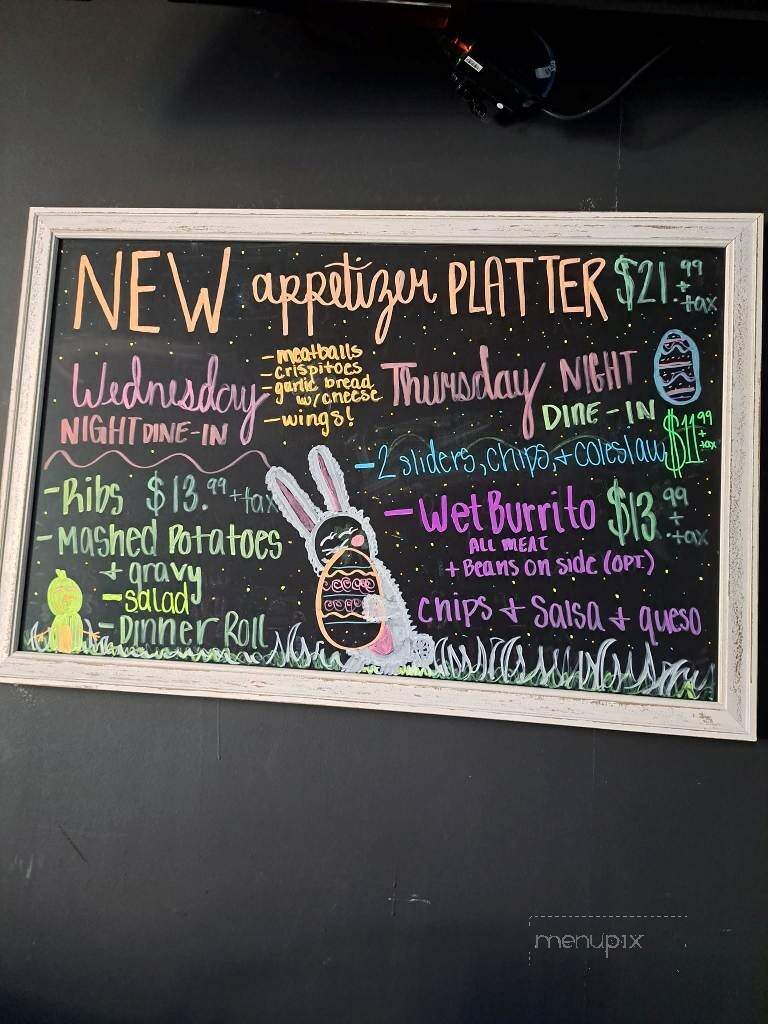 NEW appetizer PLATTER $21.99 + tax
- meatballs
- crispitoes
- garlic bread
w/cheese
- wings!
Wednesday
NIGHT DINE-IN
- Ribs $13.99 + tax
- Mashed Potatoes
+ gravy
- salad
- Dinner Roll
Thursday NIGHT
DINE-IN
- 2 sliders, chips, + coleslaw $11.99 + tax
- Wet Burrito $13.99 + tax
ALL MEAT
+ Beans on side (OPT.)
chips + Salsa + queso
menupix